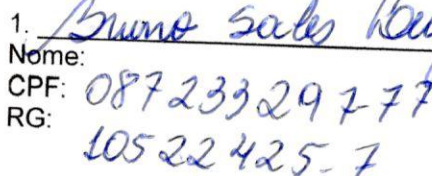 1. Bruno Sales
Nome:
CPF: 087233297-77
RG:
10522425-7